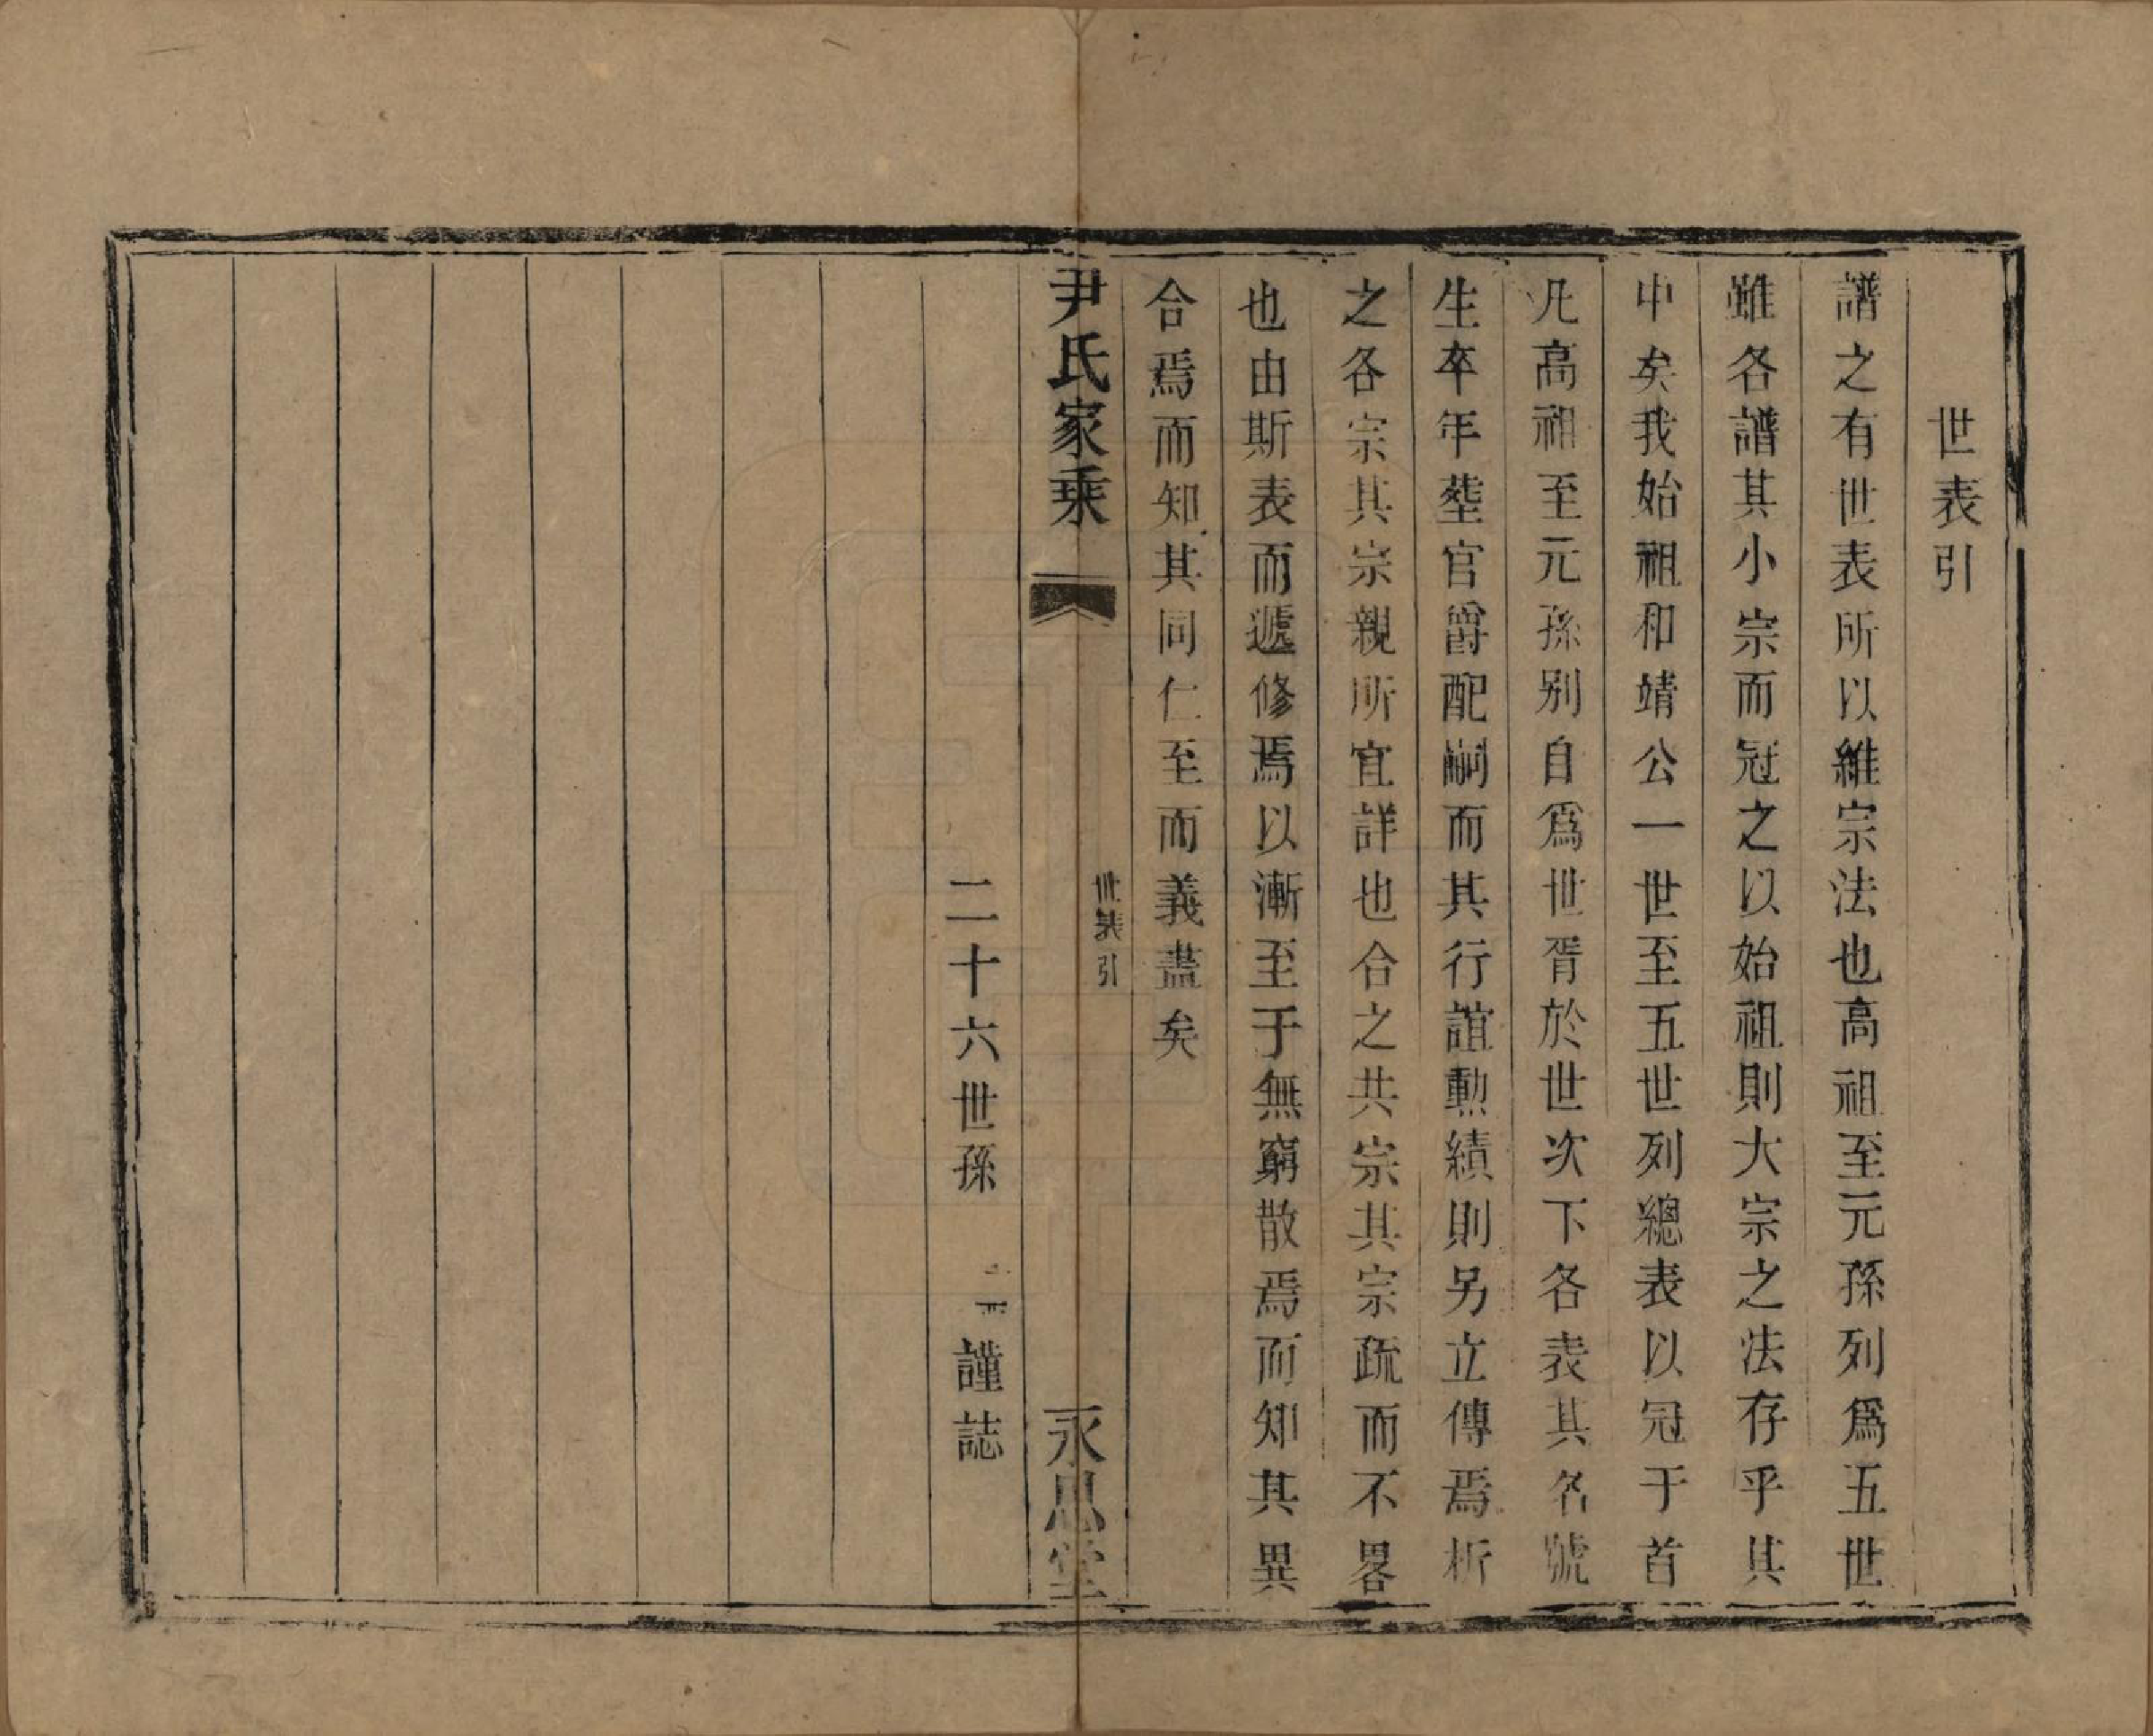 世表引
譜之有世表所以維宗法也高祖至元孫列爲五世
雖各譜其小宗而冠之以始祖則大宗之法存乎其
中矣我始祖和靖公一世至五世列總表以冠于首
凡高祖至元孫别自爲世胥於世次下各表其名號
生卒年塟官爵配嗣而其行誼勲績則另立傳焉析
之各宗其宗親所宜詳也合之共宗其宗疏而不畧
也由斯表而遞修焉以漸至于無窮散焉而知其異
合焉而知其同仁至而義盡矣
尹氏家乘
世表引
永思堂
二十六世孫
謹誌